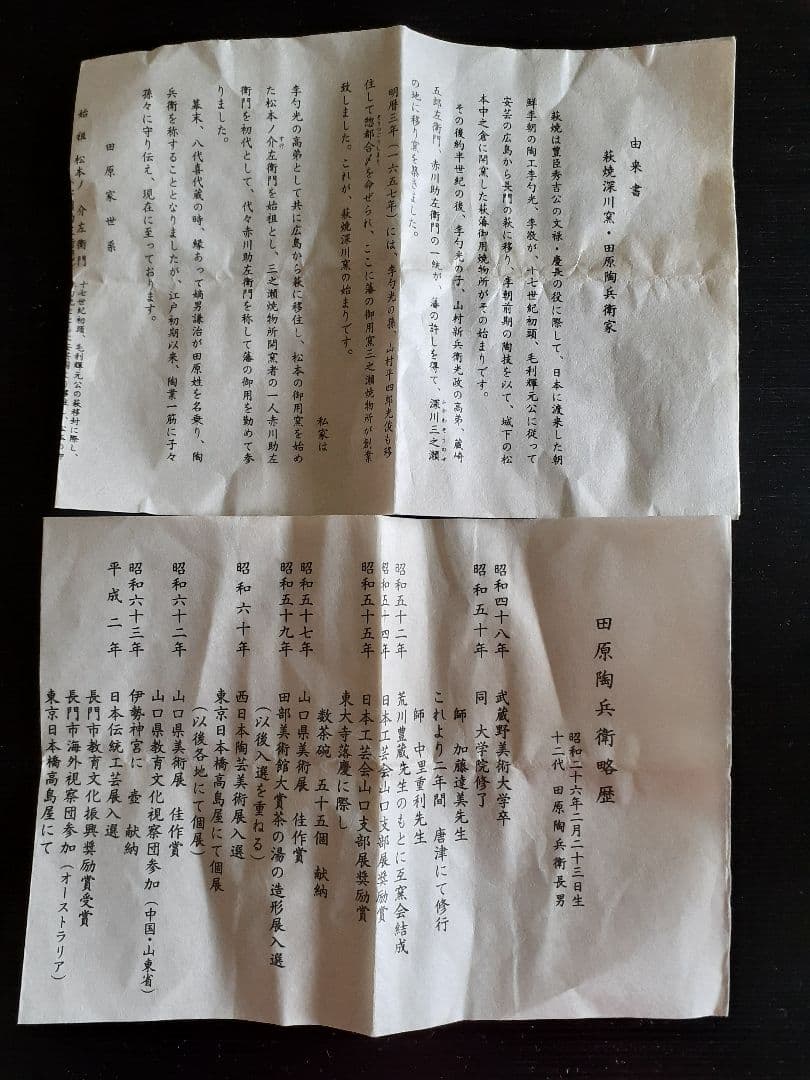 由来書
萩焼深川窯・田原陶兵衛家
萩焼は豊臣秀吉公の文禄・慶長の役に際して、日本に渡来した朝
鮮李朝の陶工李勺光、李敬が、十七世紀初頭、毛利輝元公に従って
安芸の広島から長門の萩に移り、李朝前期の陶技を以て、城下の松
本中之倉に開窯した萩藩御用焼物所がその始まりです。
その後約半世紀の後、李勺光の子、山村新兵衛光政の高弟、蔵崎
五郎左衛門、赤川助左衛門の一統が、藩の許しを得て、深川三之瀬
の地に移り窯を築きました。
明暦三年(一六五七年)には、李勺光の孫、山村平四郎光俊も移
住して惣都合〆を命ぜられ、ここに藩の御用窯三之瀬焼物所が創業
致しました。これが、萩焼深川窯の始まりです。
私家は
李勺光の高弟として共に広島から萩に移住し、松本の御用窯を始め
た松本ノ介左衛門を始祖とし、三之瀬焼物所開窯者の一人赤川助左
衛門を初代として、代々赤川助左衛門を称して藩の御用を勤めて参
りました。
幕末、八代喜代蔵の時、縁あって嫡男謙治が田原姓を名乗り、陶
兵衛を称することとなりましたが、江戸初期以来、陶業一筋に子々
孫々に守り伝え、現在に至っております。
田原家世系
始祖 松本ノ介左衛門 十七世紀初頭、毛利輝元公の萩移封に際し、
田原陶兵衛略歴
昭和二十六年二月二十三日生
十二代 田原陶兵衛長男
昭和四十八年 武蔵野美術大学卒
昭和五十年 同 大学院修了
師 加藤達美先生
これより二年間 唐津にて修行
師 中里重利先生
昭和五十二年 荒川豊蔵先生のもとに至窯会結成
昭和五十四年 日本工芸会山口支部展奨励賞
昭和五十五年 日本工芸会山口支部展奨励賞
東大寺落慶に際し
数茶碗 五十五個 献納
昭和五十七年 山口県美術展 佳作賞
昭和五十九年 田部美術館大賞茶の湯の造形展入選
(以後入選を重ねる)
昭和六十年 西日本陶芸美術展入選
東京日本橋高島屋にて個展
(以後各地にて個展)
昭和六十二年 山口県美術展 佳作賞
山口県教育文化視察団参加(中国・山東省)
昭和六十三年 伊勢神宮に 壺 献納
平成二年 日本伝統工芸展入選
長門市教育文化振興奨励賞受賞
長門市海外視察団参加(オーストラリア)
東京日本橋高島屋にて